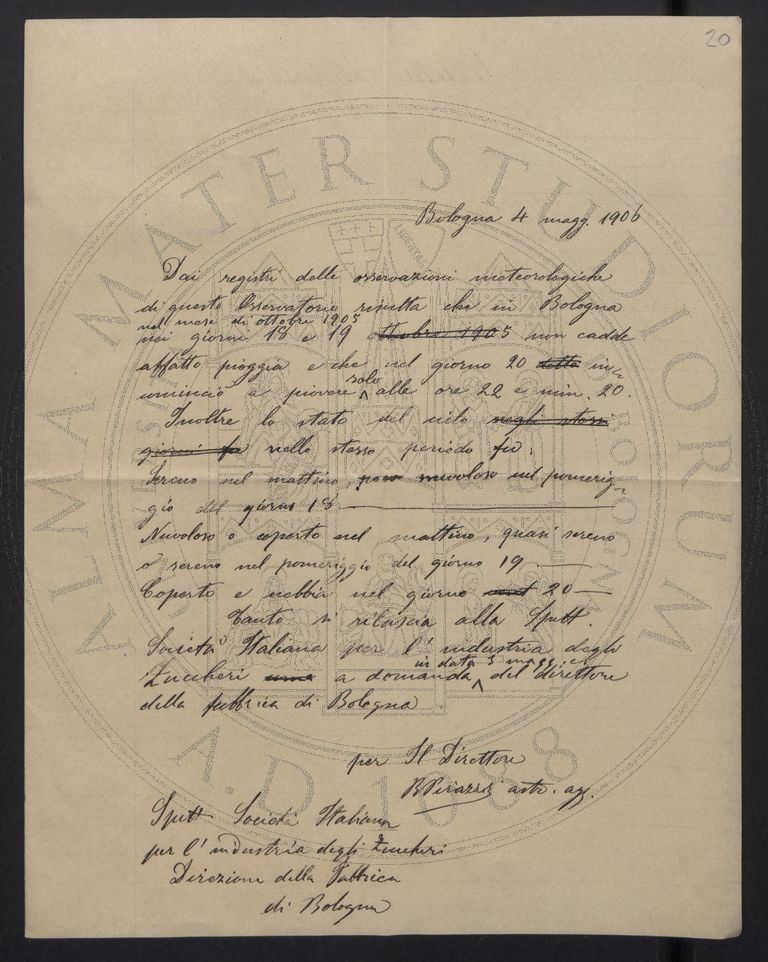 20
Bologna 4 magg. 1906
Dai registri delle osservazioni meteorologiche
di questo Osservatorio risulta che in Bologna
nel mese di ottobre 1905
nei giorni 18 e 19 ottobre 1905 non cadde
affatto pioggia e che nel giorno 20 in-
cominciò a piovere solo alle ore 22 e min. 20.
Inoltre lo stato del cielo negli stessi
giorni fu nello stesso periodo fu:
Sereno nel mattino, poco nuvoloso nel pomerig-
gio del giorno 18
Nuvoloso o coperto nel mattino, quasi sereno
o sereno nel pomeriggio del giorno 19
Coperto e nebbia nel giorno 20
Tanto si rilascia alla Spett.
Società Italiana per l'industria degli
in data 3 magg. c.
Zuccheri a domanda del direttore
della fabbrica di Bologna
per Il Direttore
astr. agg.
Spett Società Italiana
per l'industria degli Zuccheri
Direzione della Fabbrica
di Bologna
ALMA MATER STUDIORUM
A.D. 1088